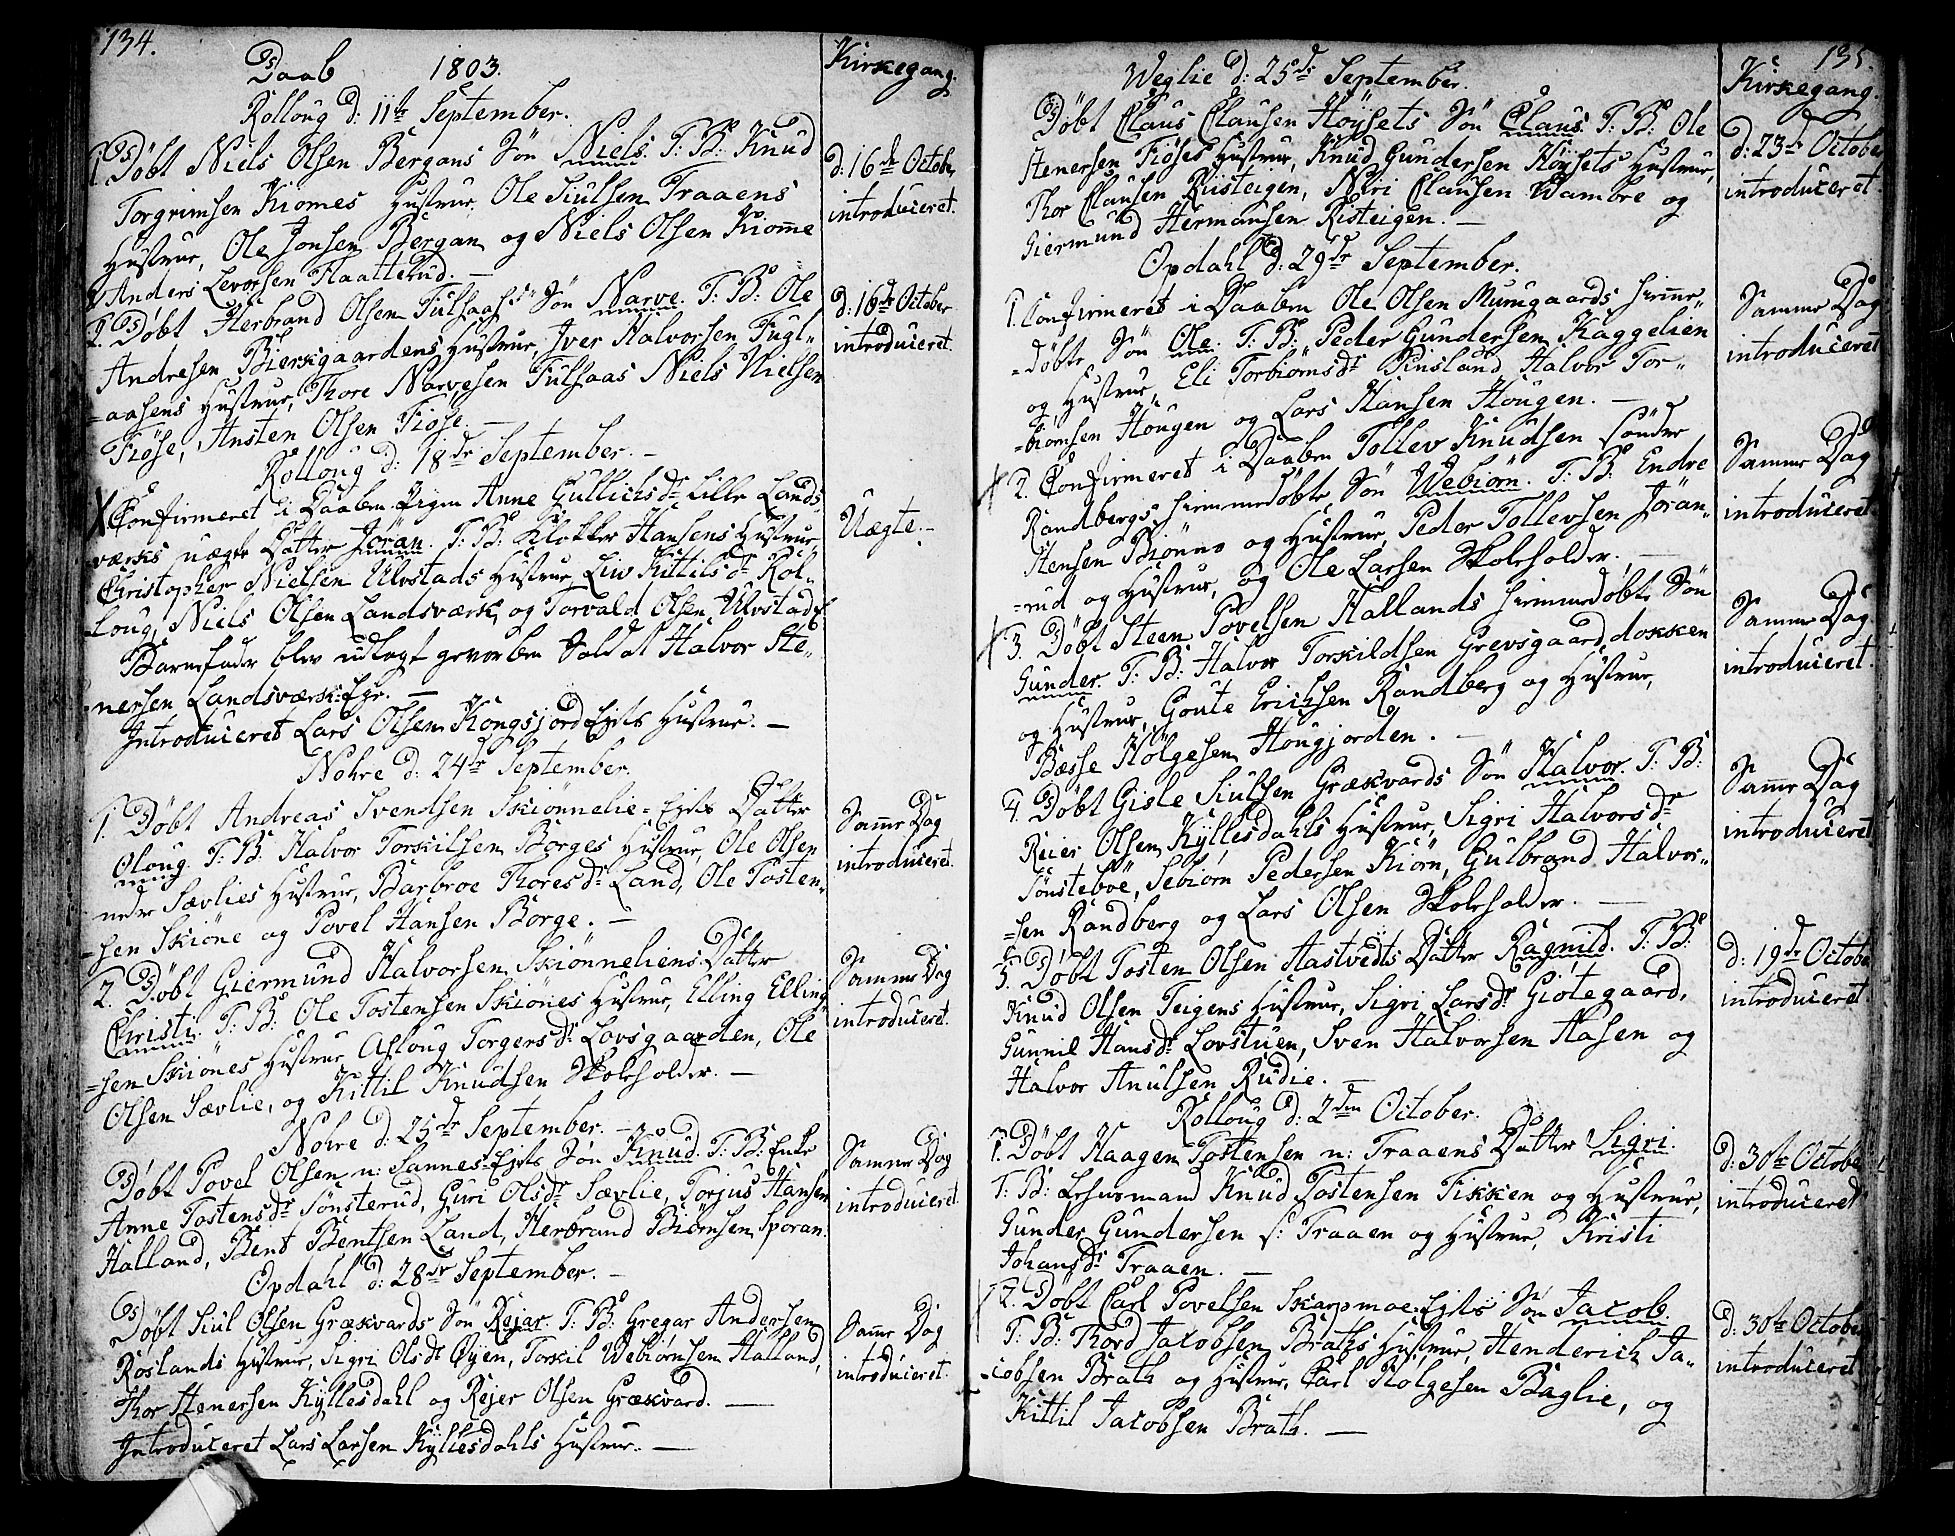 134.
Daab 1803. Kirkegang.
Rolloug d: 11te September.
1. Døbt Niels Olsen Bergans Søn Niels. T: B: Knud
Torgrimsen Kiomes Hustrue, Ole Siulsen Traaens
Hustrue, Ole Jonsen Bergan og Niels Olsen Kiome
Anders Levorsen Flaatterud. —
d: 16de October
introduceret.
2. Døbt Herbrand Olsen Fulsaas Søn Narve. T: B: Ole
Andresen Bierkgaardens Hustrue, Iver Halvorsen Fugl-
=aasens Hustrue, Thore Narvesen Fulsaas Niels Nielsen
Fiøse, Ansten Olsen Fiøse. —
d: 16de October
introduceret
Rolloug d: 18de September. —
X Confirmeret i Daaben Pigen Anne Gullichsdr Lille Lands-
værks uægte Datter Jöran. T: B: Klokker Hansens Hustrue
Christopher Nielsen Ulvstads Hustrue, Liv Kittilsdr Rol-
loug, Niels Olsen Landsværk, og Torvald Olsen Ulvstad
Barnefader blev udlagt gevorben Soldat Halvor Ste-
nersen Landsværk Eje. —
Uægte. —
Introduceret Lars Olsen Kongsjord Ejets Hustrue. —
Nohre d: 24de September.
1. Døbt Andreas Svendsen Skiönnelie=Ejets Datter
Oloug. T: B: Halvor Torkilsen Borges Hustrue, Ole Olsen
nedre Sævlies Hustrue, Barbroe Thoresdr Land, Ole Tosten-
=sen Skiöne og Povel Hansen Borge. —
Samme Dag
introduceret.
2. Døbt Giermund Halvorsen Skiönneliens Datter
Christi. T: B: Ole Tostensen Skiönes Hustrue, Elling Elling
=sen Skiönes Hustrue, Asloug Torgersdr Lovsgaarden, Ole
Olsen Sævlie, og Kittil Knudsen Skoleholder. —
Samme Dag
introduceret.
Nohre d: 25de September. —
Døbt Povel Olsen n: Sannes=Ejets Søn Knud. T: B: Enke
Anne Tostensdr Sönsterud, Guri Olsdr Sævlie, Torjus Hansen
Halland, Bent Bentsen Land, Herbrand Biörnsen Sporan.
Samme Dag
introduceret.
Opdahl d: 28de September. —
Døbt Siul Olsen Grækvards Søn Rejar. T: B: Gregar Andersen
Roslands Hustrue, Sigri Olsdr Øyen, Torkil Webiörnsen Halland,
Thor Stenersen Kyllesdahl og Rejer Olsen Grækvard. —
Samme Dag
introduceret.
Introduceret Lars Larsen Kyllesdahls Hustrue. —
135.
Weglie d: 25de September. Kirkegang.
Døbt Claus Clausen Höysets Søn Claus. T: B: Ole
Stenersen Fiøses Hustrue, Knud Gundersen Höysets Hustrue,
Thor Clausen Risteigen, Neri Clausen Wambre og
Giermund Hermansen Risteigen. —
d: 23de October
introduceret.
Opdahl d: 29de September.
1. Confirmeret i Daaben Ole Olsen Mumgaards hiemme-
=døbte Søn Ole. T: B: Peder Gundersen Kaggelien
og Hustrue, Eli Torbiörnsdr Pinsland, Halvor Tor-
=biornsen Hougen og Lars Hansen Hougen. —
Samme Dag
introduceret
2. Confirmeret i Daaben Tollev Knudsen søndre
Randbergs hiemmedøbte Søn Webiörn. T: B: Endre
Stensen Biönno og Hustrue, Peder Tollevsen Jöran-
=rud og Hustrue, og Ole Larsen Skoleholder. —
Samme Dag
introduceret
3. Døbt Steen Povelsen Hallands hiemmedøbte Søn
Gunder. T: B: Halvor Torkildsen Grevsgaard, dokken
og Hustrue, Goute Erichsen Randberg og Hustrue,
Bæsse Holgesen Hougjorden. —
Samme Dag
introduceret.
4. Døbt Gisle Siulsen Grækvards Søn Halvor. T: B:
Reier Olsen Kyllesdahls Hustrue, Sigri Halvorsdr
Tönsteböe, Sebiörn Pedersen Kiörn, Gulbrand Halvor-
=sen Randberg og Lars Olsen Skoleholder. —
Samme Dag
introduceret
5. Døbt Tosten Olsen Aastvedts Datter Ragnild. T: B:
Knud Olsen Teigens Hustrue, Sigri Larsdr Giötegaard,
Gunnil Hansdr Lovstuen, Sven Halvorsen Aasen og
Halvor Anulsen Rudie. —
d: 19de October
introduceret
Rolloug d: 2den October.
1. Døbt Haagen Tostensen n: Traaens Datter Sigri.
T: B: Lehnsmand Knud Tostensen Fikken og Hustrue,
Gunder Gundersen s: Traaen og Hustrue, Kristi
Johansdr Traaen. —
d: 30te October
introduceret
2. Døbt Carl Povelsen Skarpmoe=Ejets Søn Jacob.
T: B: Thord Jacobsen Braths Hustrue, Henderich Ja-
=cobsen Brath og Hustrue, Carl Holgesen Baglie, og
Kittil Jacobsen Brath. —
d: 30te October
introduceret